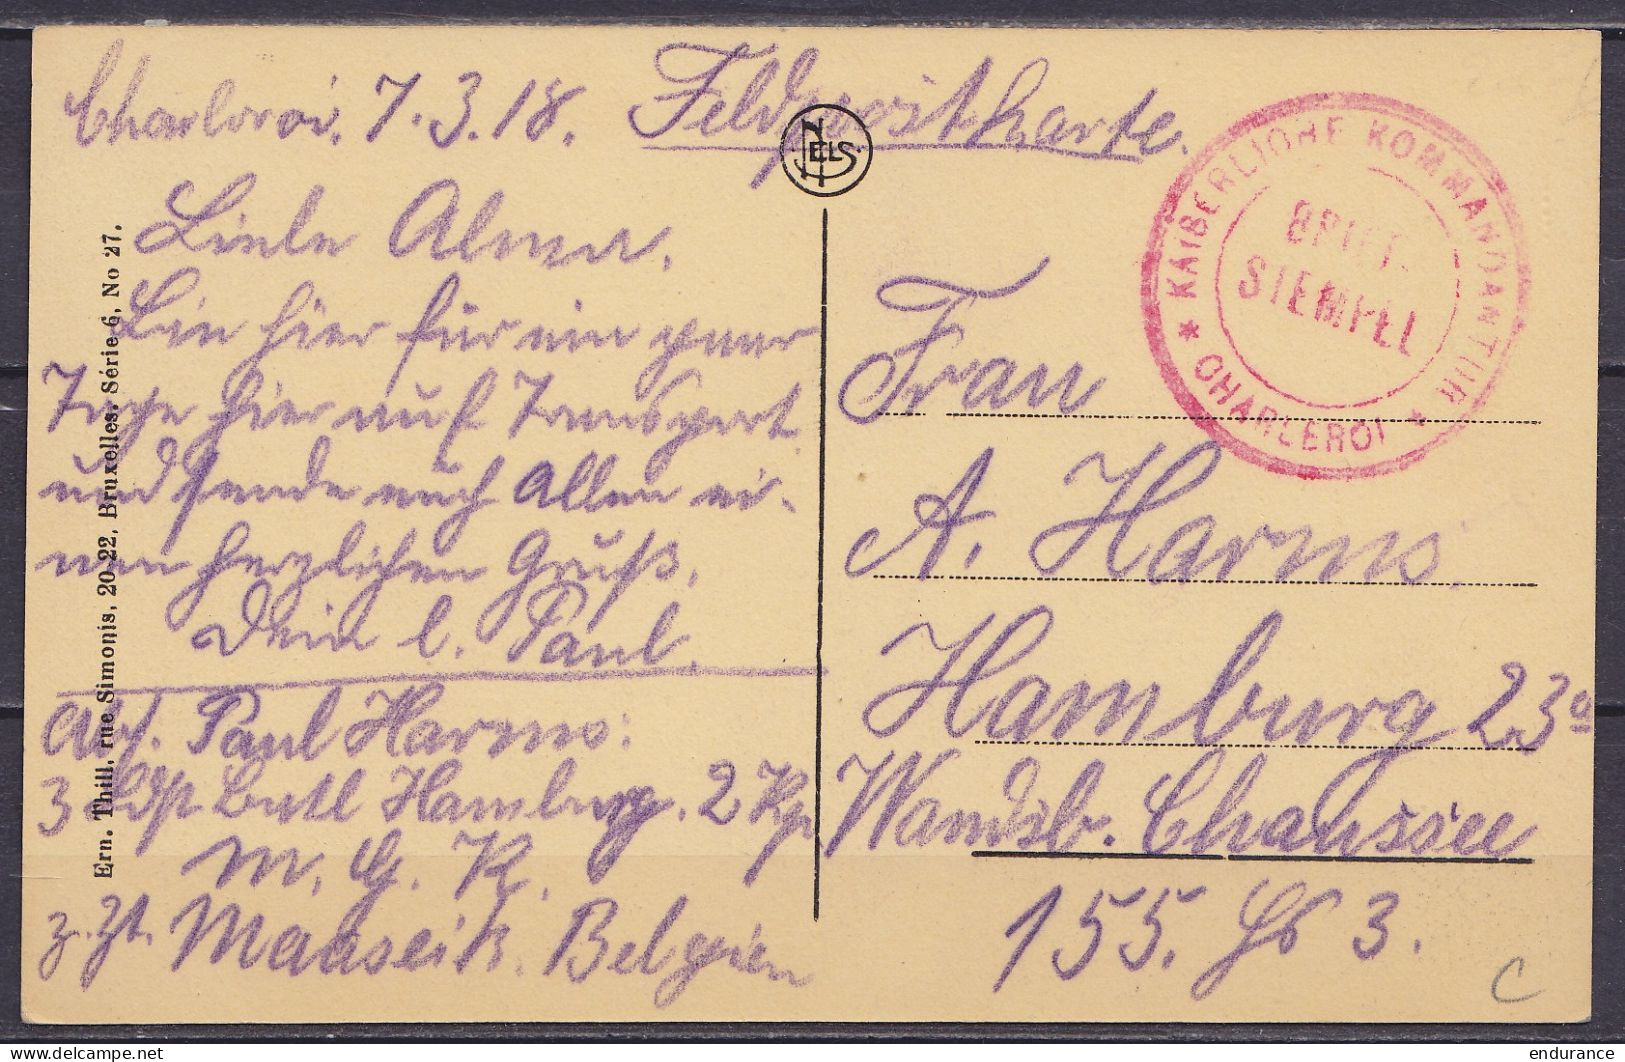 Charleroi, 7.3.18. Feldpostkarte.
NELS
Liebe Alma.
Bin hier für ein paar
Tage hier auf Transport
und sende euch Allen ei-
nen herzlichen Gruß.
Dein l. Paul.
Abs. Paul Harms.
3 Ldst Batl Hamburg. 2 Kp
M. G. K.
z. Zt. Maaseik. Belgien
Ern. Thill, rue Simonis, 20-22, Bruxelles. Série 6, No 27.
* KAISERLICHE KOMMANDANTUR *
CHARLEROI
BRIEF-
STEMPEL
Frau
A. Harms.
Hamburg 23a
Wandsb. Chaussee
155. Hs 3.
C
delcampe.net
endurance